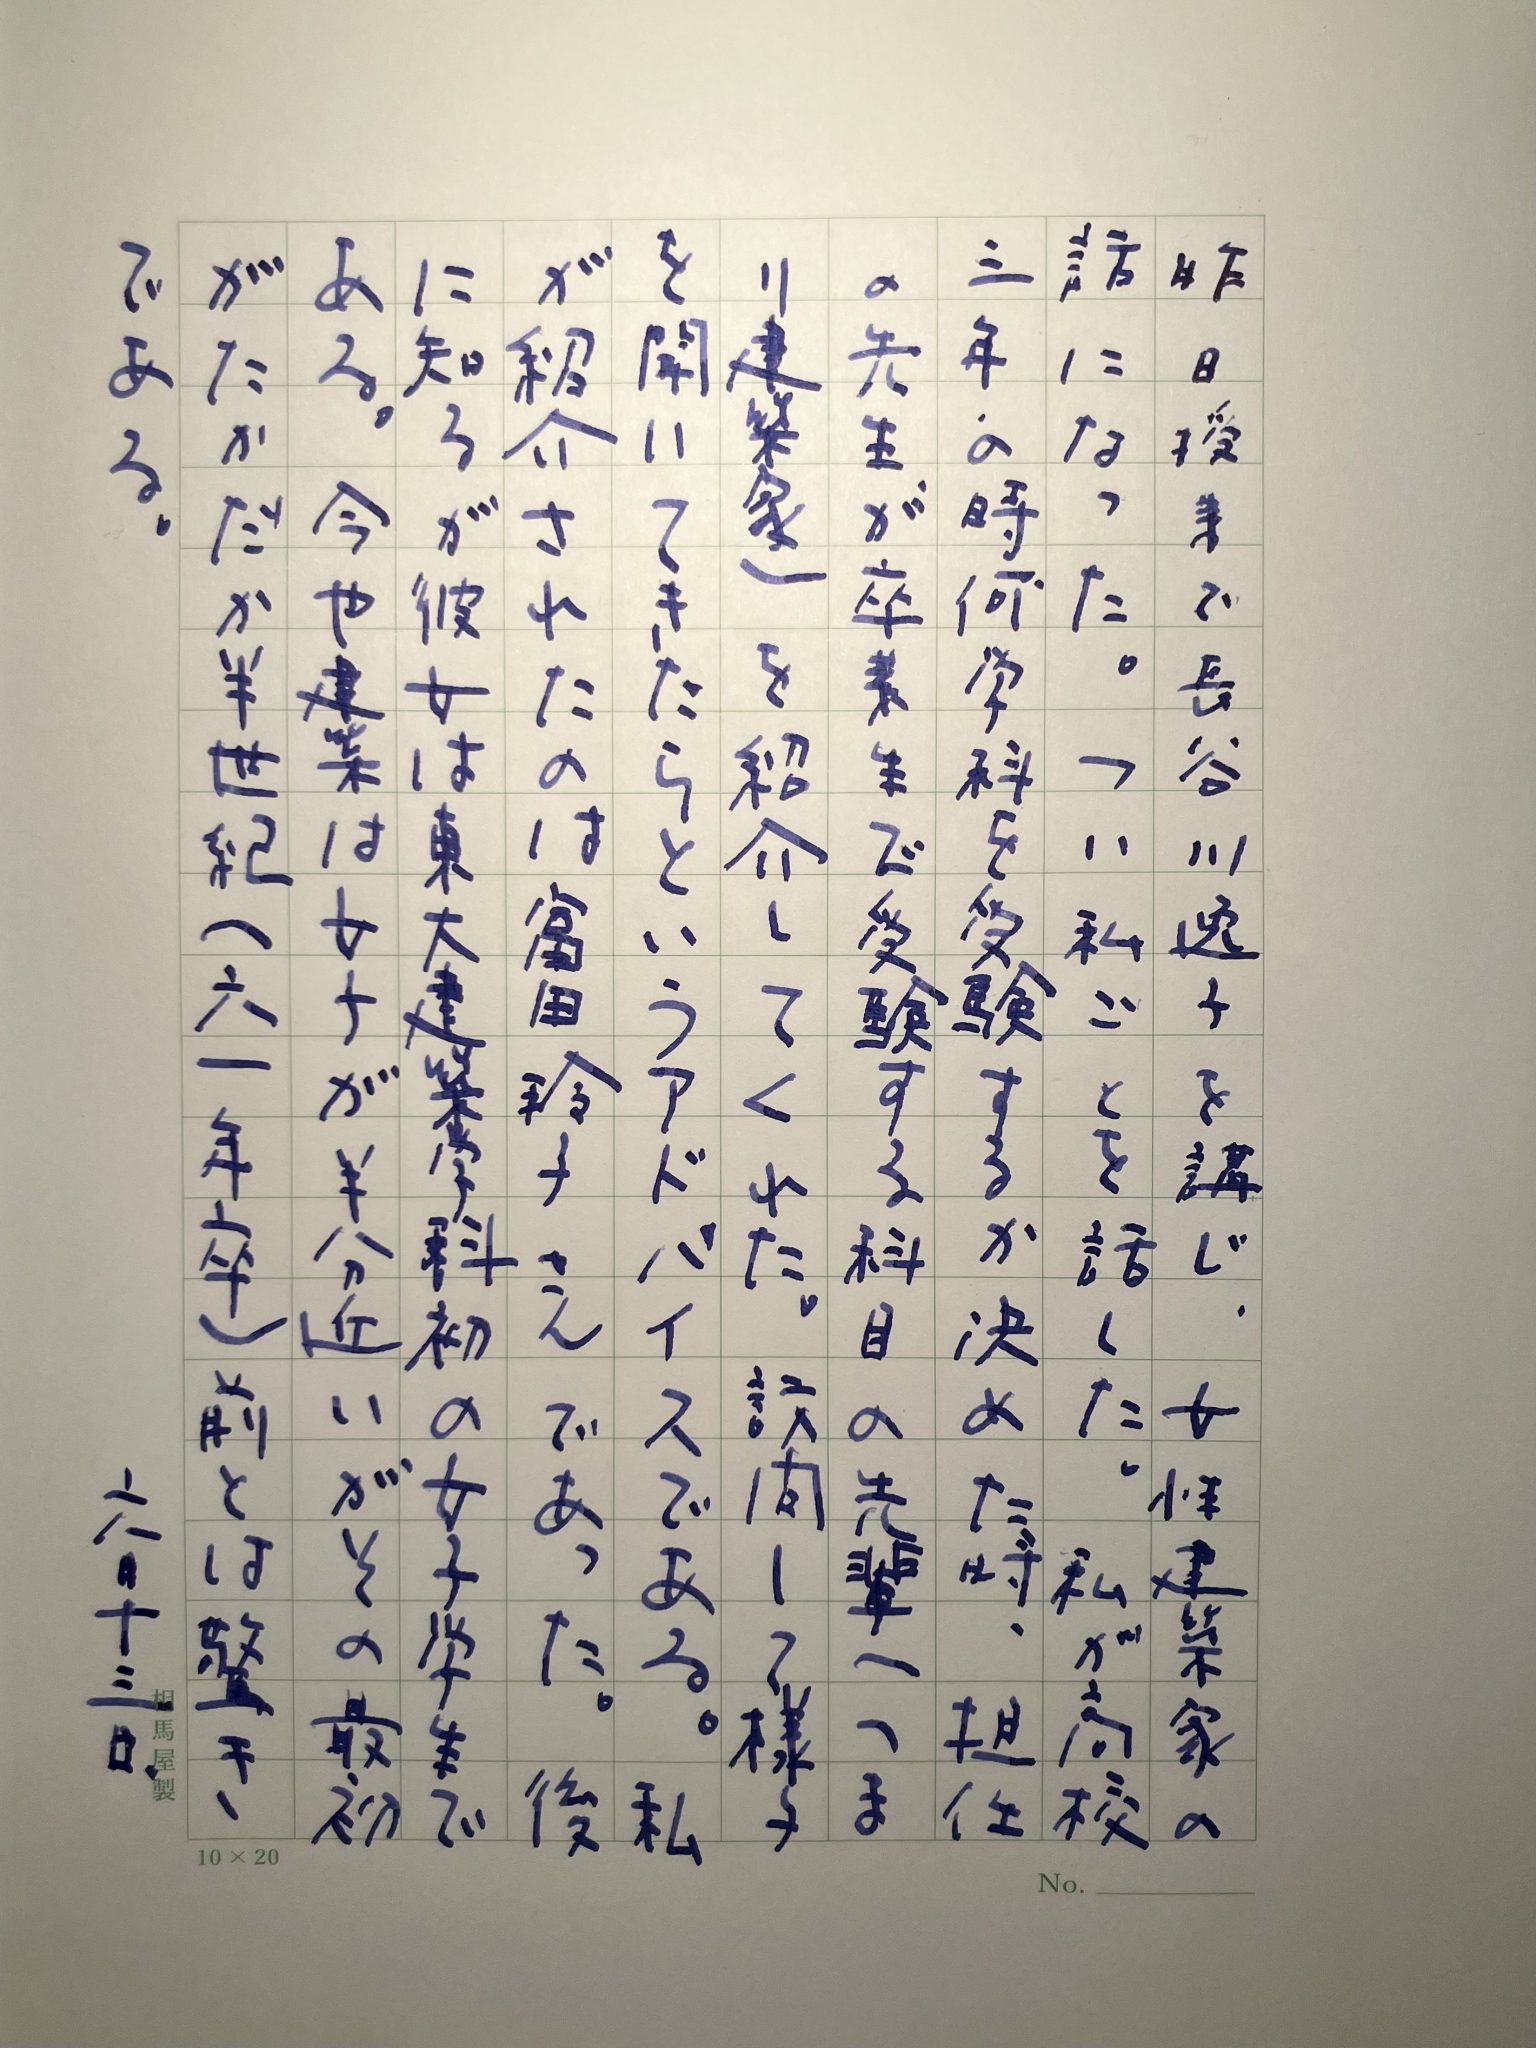 昨日授業で長谷川逸子を講じ、女性建築家の
話になった。つい私ごとを話した。私が高校
三年の時何学科を受験するか決めた時、担任
の先生が卒業生で受験する科目の先輩（つま
り建築家）を紹介してくれた。訪問して様子
を聞いてきたらというアドバイスである。私
が紹介されたのは富田玲子さんであった。後
に知るが彼女は東大建築学科初の女子学生で
ある。今や建築は女子が半分近いがその最初
がたかだか半世紀（六一年卒）前とは驚き、
である。
六月十三日、
相馬屋製
10 × 20
No.